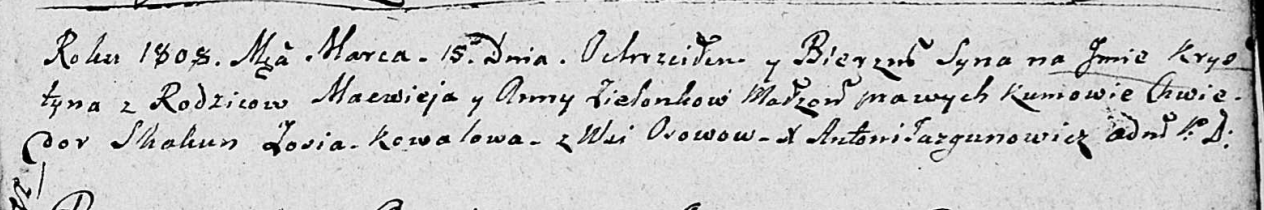 Roku 1808. Mca Marca. 15. Dnia. Ochrzciłem y Bierzm Syna na Jmie Krys
tyna z Rodzicow Macwieja y Anny Zielonkow Małżon prawych Kumowie Chwie-
dor Skakun Zosia. Kowalowa. z Wsi Osowow. X Antoni Jazgunowicz adm